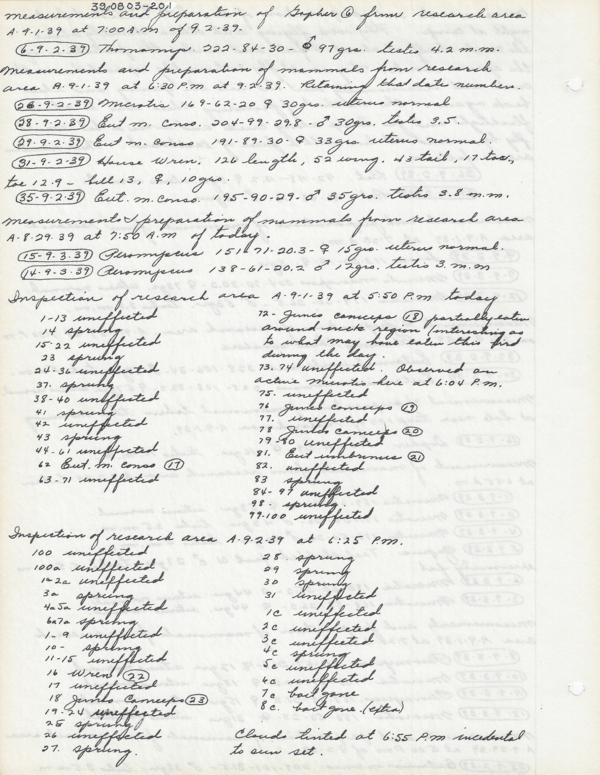 390803-201
Measurements and preparation of Gopher ⑥ from research area
A-9-1-39 at 7:00 A.m of 9.2.39.
(6-9.2-39) Thomomys 222-84-30- ♂ 97grs. testis 4.2 m.m.
Measurements and preparation of mammals from research
area A-9-1-39 at 6:30 P.m at 9.2.39. Retaining that date numbers.
(26-9.2-39) Microtis 169-62-20 ♀ 30grs. uterus normal
(28-9.2-39) Eut m. Conso. 204-99-29.8- ♂ 30grs. testis 3.5.
(29-9.2-39) Eut m. Conso 191-89-30- ♀ 33grs uterus normal.
(31-9-2-39) House Wren. 126 length, 52 wing. 43 tail, 17 toe,
toe 12.9 - bill 13, ♀, 10grs.
(35-9.2-39) Eut. m. Conso. 195-90-29- ♂ 35grs. testis 3.8 m.m.
Measurements & preparation of mammals from research area
A-8-29-39 at 7:50 A.m of today.
(15-9.3-39) Peromyscus 151-71-20.3- ♀ 15grs. uterus normal.
(14-9.3-39) Peromyscus 138-61-20.2 ♂ 12grs. testis 3. m.m
Inspection of research area A-9-1-39 at 5:50 P.m today
1-13 uneffected
14 sprung
15-22 uneffected
23 sprung
24-36 uneffected
37. sprung
38-40 uneffected
41 sprung
42 uneffected
43 sprung
44-61 uneffected
62 Eut. m. Conso ⑰
63-71 uneffected
72- Junco caniceps ⑱ partially eaten
around neck region (interesting as
to what may have eaten this bird
during the day.
73.74 uneffected. Observed an
active Microtis here at 6:04 P.m.
75. uneffected
76 Junco caniceps ⑲
77. uneffected
78 Junco caniceps ⑳
79-80 uneffected
81. Eut umbrinus ㉑
82. uneffected
83 sprung
84-97 uneffected
98- sprung.
99-100 uneffected
Inspection of research area A-9-2-39 at 6:25 P.m.
100 uneffected
100a uneffected
1a-2a uneffected
3a sprung
4a5a uneffected
6a7a sprung
1-9 uneffected
10- sprung
11-15 uneffected
16 Wren ㉒
17 uneffected
18 Junco Caniceps ㉓
19-24 uneffected
25 sprung
26 uneffected
27. sprung.
28. sprung
29 sprung
30 sprung
31 uneffected
1c uneffected
2c uneffected
3c uneffected
4c sprung
5c uneffected
6c uneffected
7c bait gone
8c. bait gone (extra)
Clouds tinted at 6:55 P.m incidental
to sun set.